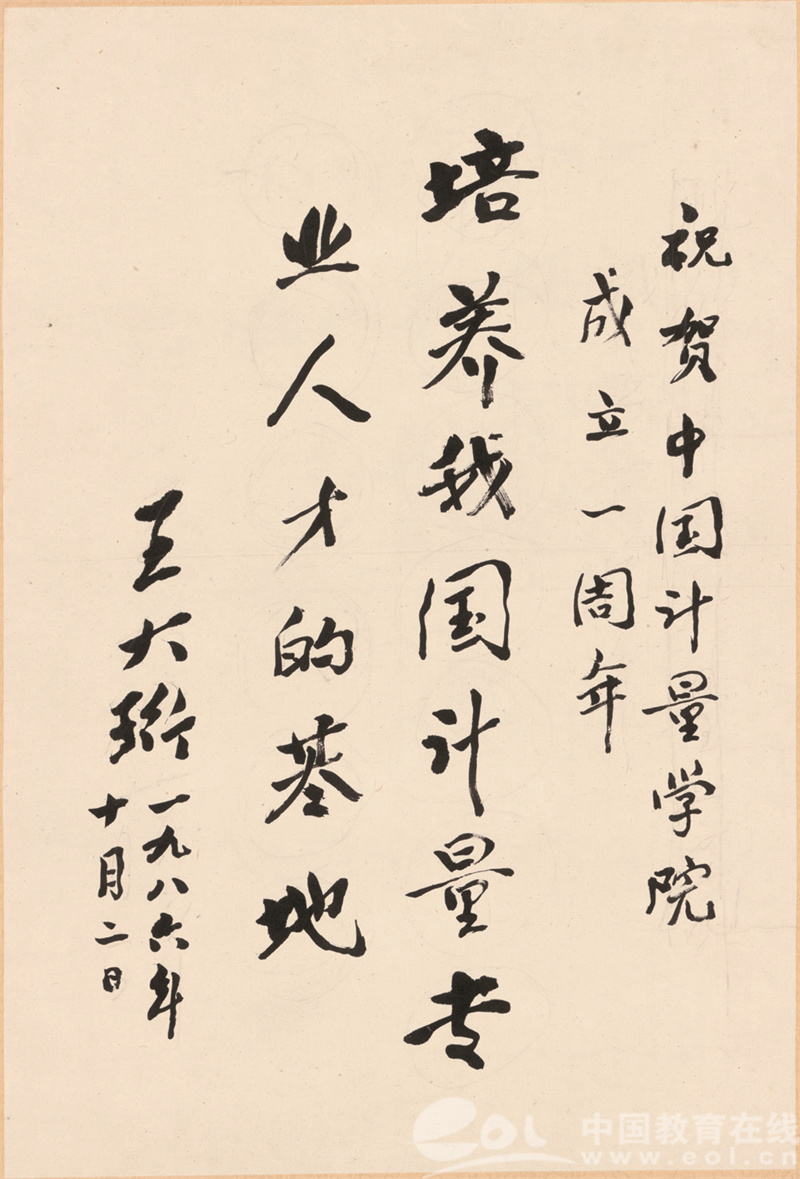 祝贺中国计量学院
成立一周年
培养我国计量专
业人才的基地
王大珩
一九八六年
十月二日
eol 中国教育在线
www.eol.cn